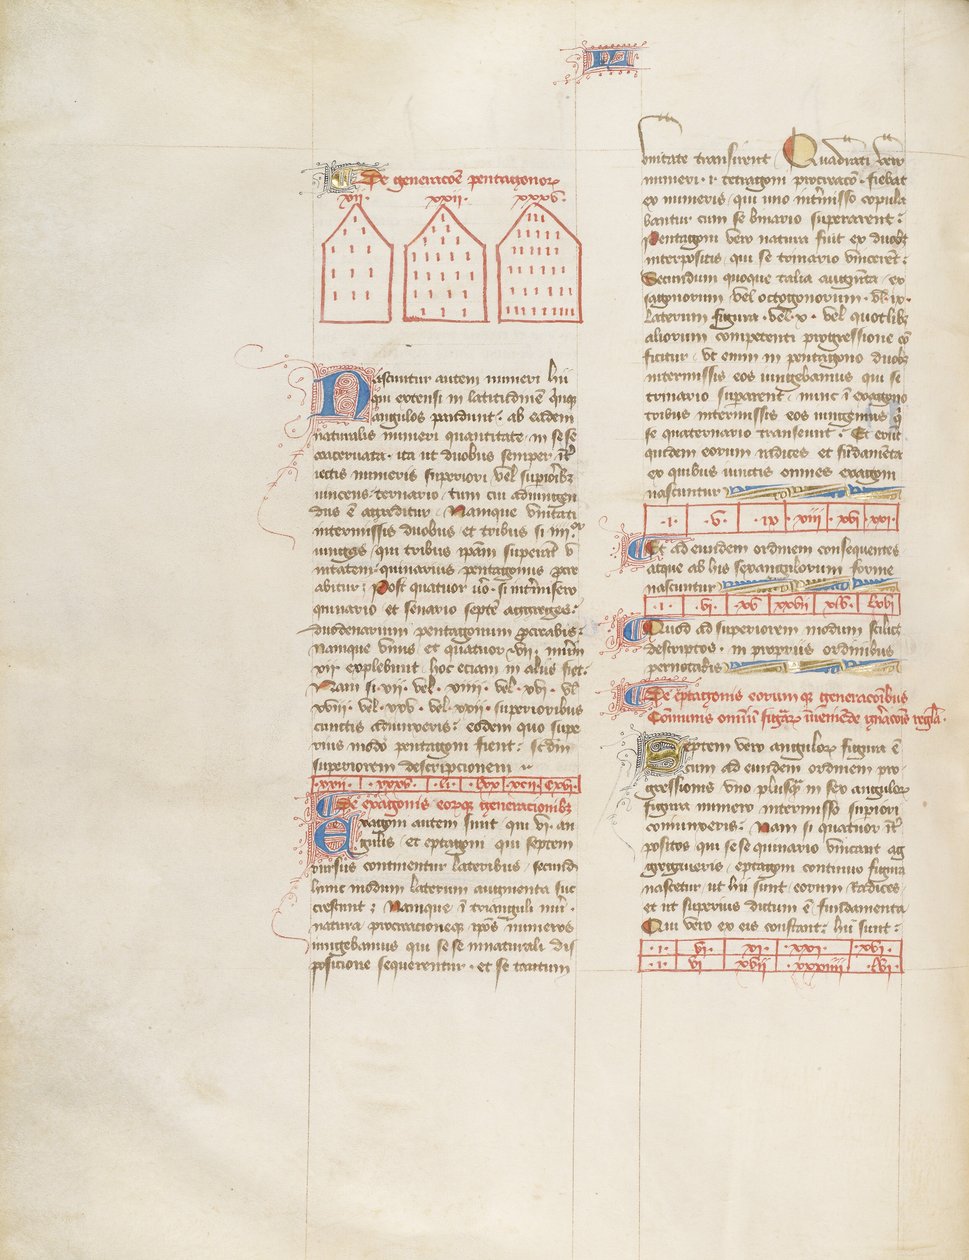 De generacōe pentagonoꝝ
·xii· ·xxii· ·xxxv·
Nascuntur autem numeri hii
qui extensi in latitudinē quinqꝫ
angulos pandunt : ab eadem
naturalis numeri quantitate in se se
coaceruata · ita ut duobus semper
iectis numeris superiori vel
uincens ternario · tum cui adiungen
dus ē aggreditur · Namque vnitati
intermissis duobus et tribus si
iungas qui tribus ipam superat
nitatem quinarius pentagonus
abitur : Post quatuor vō · si
quinario et senario septē aggreges :
duodenarium pentagonum procabis :
Namque vnus et quatuor · vii ·
xii · explebunt · hoc eciam in aliis fiet :
Nam si · vii · vel · viiii · vel · xvi · vl
xviii · vel · xxv · vel · xvii · superioribus
cunctis adiunxeris : eodem quo supe
rius modo pentagoni fient :
superiorem descripcionem
·xxii· ·xxxv· ·li· ·lxx· ·xcii· ·cxvi·
De exagonis eorꝫqꝫ generationibꝫ
Exagoni autem sunt qui vi · an
gulis · et eptagoni qui septem
rursus continentur lateribus · secund
hunc modum laterum augmenta suc
crescunt : Namque ī trianguli
natura procreacioneqꝫ ipōs numeros
iungebamus qui se se innaturali dis
posicione sequerentur · et se tantum
vnitate transirent Quadrati vero
numeri · i · tetragoni procreacō · fiebat
ex numeris qui uno copula
bantur cum se binario superarent :
Pentagoni vero natura fuit ex duobꝫ
interpositis qui se ternario vincerēt :
Secundum quoque talia augmēta · ex
sagonorum vel octogonorum · vl · ix ·
laterum figura · vel · x · vel quotlibꝫ
aliorum competenti progressione cō
ficitur · Vt enim in pentagono duobꝫ
intermissis eos iungebamus qui se
trinario supararent · nunc ī exagono
tribus intermissis eos iungemus
se quaternario transeunt : Et erūt
quidem eorum radices et fūdamēta
ex quibus iunctis omnes exagoni
nascuntur
·i· ·v· ·ix· ·xiii· ·xvii· ·xxi·
Et ad eiusdem ordinem consequentes
atque ab his sexangulorum forme
nascuntur
·i· ·vi· ·xv· ·xxviii· ·xlv· ·lxvi·
Quod ad superiorem modum scilicꝫ
descriptos · in propriis ordinibus
pernotabis
De eptagonis eorumqꝫ generacōibus
Cōmunis omniū
Septem vero anguloꝝ figura ē
cum ad eiusdem ordinem pro
gressionis vno plusqꝫ in sex anguloꝝ
figura numero intermisso supiori
coniunxeris : Nam si quatuor
positos qui se se quinario vincant ag
gregaueris · eptagoni continuo figura
nascetur · ut hii sunt eorum Radices ·
et ut superius dictum ē fundamenta
Qui vero ex eis constant : hii sunt :
·i· ·vi· ·xi· ·xvi· ·xxi·
·i· vi ·xvii· ·xxxiiii· ·lvi·